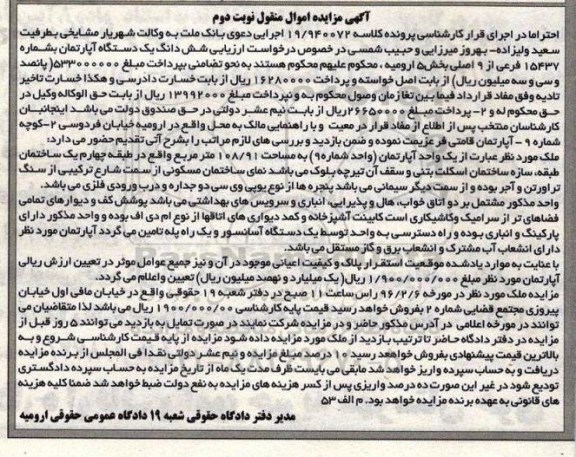 آگهی مزایده اموال منقول نوبت دوم
احتراما در اجرای قرار کارشناسی پرونده کلاسه ۱۹/۹۴۰۰۷۲ اجرایی دعوی بانک ملت به وکالت شهریار مشایخی بطرفیت
سعید ولیزاده- بهروز میرزایی و حبیب شمسی در خصوص درخواست ارزیابی شش دانگ یک دستگاه آپارتمان بشماره
۱۵۴۳۷ فرعی از ۹ اصلی بخش۵ ارومیه ، محکوم علیهم محکوم هستند به نحو تضامنی بپرداخت مبلغ ۵۳۳۰۰۰۰۰۰ (پانصد
و سی و سه میلیون ریال) از بابت اصل خواسته و پرداخت ۱۶۲۸۰۰۰۰ ریال از بابت خسارت دادرسی و هکذا خسارت تاخیر
تادیه وفق مفاد قرارداد فیما بین تغا زمان وصول محکوم به و نیرداخت مبلغ ۱۳۹۹۲۰۰۰ ریال از بابت حق الوکاله وکیل در
حق محکوم له و ۲- پرداخت مبلغ ۲۶۶۵۰۰۰۰ریال از بابت نیم عشر دولتی در حق صندوق دولت می باشد اینجانبان
کارشناسان منتخب پس از اطلاع از مفاد قرار در معیت و با راهنمایی مالک به محل واقع در ارومیه خیابان فردوسی ۲-کوچه
شماره ۹ - آپارتمان قامتی فر عزیمت نموده و ضمن بازدید و بررسی های لازم مراتب را بشرح آتی تقدیم حضور می دارد:
ملک مورد نظر عبارت از یک واحد آپارتمان (واحد شماره۹) به مساحت ۱۰۸/۹۱ متر مربع واقع در طبقه چهارم یک ساختمان
طبقه، سازه ساختمان اسکلت بتنی و سقف آن تیرچه بلوک می باشد نمای ساختمان مسکونی از سمت شارع ترکیبی از سنگ
تراورتن و آجر بوده و از سمت دیگر سیمانی می باشد پنجره ها از نوع یوپی وی سی دو جداره و درب ورودی فلزی می باشد.
واحد مذکور مشتمل بر دو اتاق خواب، هال و پذیرایی، انباری و سرویس های بهداشتی می باشد پوشش کف و دیوارهای تمامی
فضاهای تر از سرامیک وکاشیکاری است کابینت آشپزخانه و کمد دیواری های اتاقها از نوع ام دی اف بوده و واحد مذکور دارای
پارکینگ و انباری بوده و راه دسترسی به واحد توسط یک دستگاه آسانسور و یک راه پله تامین می گردد آپارتمان مورد نظر
دارای انشعاب آب مشترک و انشعاب برق و گاز مستقل می باشد.
با عنایت به موارد یادشده موقعیت استقرار پلاک و کیفیت اعیانی موجود در آن و نیز جمیع عوامل موثر در تعیین ارزش ریالی
آپارتمان مورد نظر مبلغ ۱/۹۰۰/۰۰۰/۰۰۰ ریال(یک میلیارد و نهصد میلیون ریال) تعیین و اعلام می گردد.
مزایده ملک مورد نظر در مورخه ۹۶/۲/۶ راس ساعت ۱۱ صبح در دفتر شعبه ۱۹ حقوقی واقع در خیابان مافی اول خیابان
پیروزی مجتمع قضایی شماره ۲ بفروش خواهد رسید قیمت پایه کارشناسی ۱۹۰۰/۰۰۰/۰۰۰ ریال می باشد لذا متقاضیان می
توانند در مورخه اعلامی در آدرس مذکور حاضر و در مزایده شرکت نمایند در صورت تمایل به بازدید می توانند ۵ روز قبل از
مزایده در دفتر دادگاه حاضر تا ترتیب بازدید از ملک مورد مزایده داده شود مزایده از پایه قیمت کارشناسی شروع و به
بالاترین قیمت پیشنهادی بفروش خواهد رسید ۱۰ درصد مبلغ مزایده و نیم عشر دولتی نقدا فی المجلس از برنده مزایده
دریافت و به حساب سپرده واریز خواهد شد مابقی می بایست ظرف مدت یک ماه از تاریخ مزایده به حساب سپرده دادگستری
تودیع شود در غیر این صورت ده درصد واریزی پس از کسر هزینه های مزایده به نفع دولت ضبط خواهد شد ضمنا کلیه هزینه
های قانونی به عهده برنده مزایده خواهد بود. م الف ۵۳
مدیر دفتر دادگاه حقوقی شعبه ۱۹ دادگاه عمومی حقوقی ارومیه